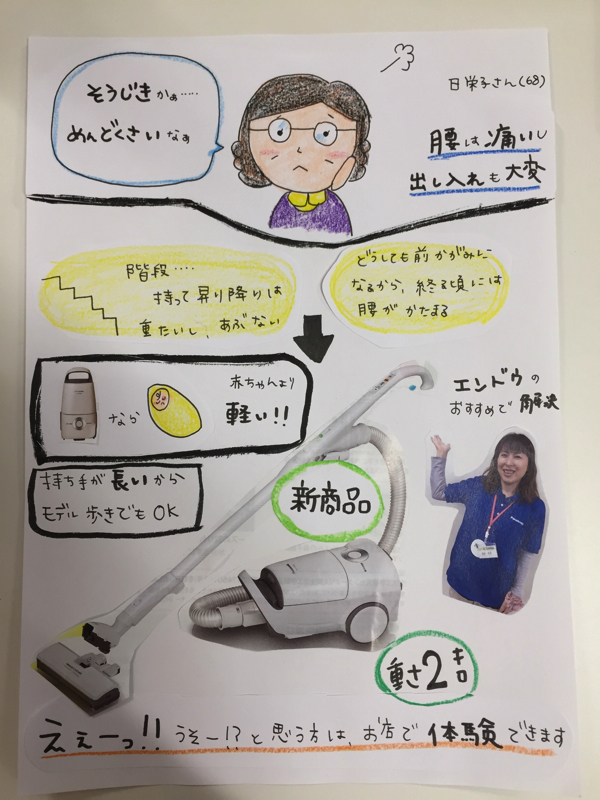 そうじきかぁ‥‥‥
めんどくさいなぁ
日栄子さん(68)
腰は痛いし
出し入れも大変
階段‥‥
持って昇り降りは
重たいし、あぶない
どうしても前かがみに
なるから、終る頃には
腰がかたまる
なら
赤ちゃんより
軽い!!
エンドウの
おすすめで解決
持ち手が長いから
モデル歩きでもOK
新商品
重さ2キロ
えぇーっ!! うそー!?と思う方は、お店で体験できます